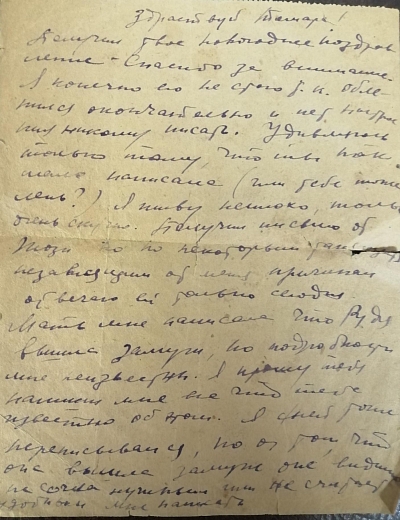 Здравствуй Тамара!
Получил твое новогоднее поздрав
ление - Спасибо за внимание.
Я конечно его не стою т. к. обле
нился окончательно и нет настрое
ния никому писать. Удивляюсь
только тому, что ты так
мало написала (или тебе тоже
лень?) Я живу неплохо, только
очень скучно. Получил письмо от
но по некоторым
независящим от меня причинам
отвечаю ей только сегодня
Мать мне написала что Рудя
вышла замуж, но подробности
мне неизвестны. Я прошу тебя
напиши мне все что тебе
известно об этом. Я с ней тоже
переписывался, но о том, что
она вышла замуж она видимо
не сочла нужным или не считает
мне написать